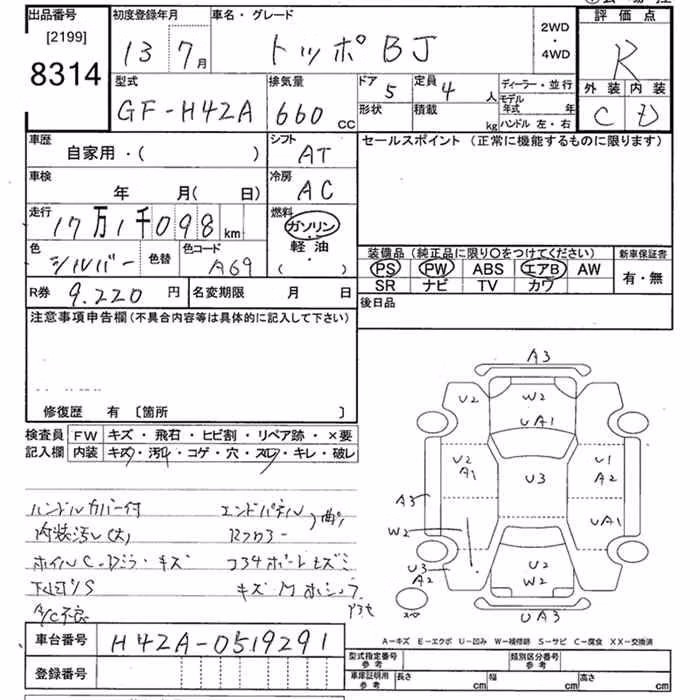 出品番号
[2199]
8314
初度登録年月
13 7月
車名・グレード
トッポBJ
2WD
・
4WD
評価点
R
外装 内装
C D
型式
GF-H42A
排気量
660 CC
ドア 5
定員 4 人
形状
積載 kg
ディーラー・並行
モデル年式 年
ハンドル 左・右
車歴
自家用・( )
シフト
AT
車検
年 月( 日)
冷房
AC
走行
17万1千098 km
燃料
ガソリン
・
軽油
( )
色
シルバー
色替
色コード
A69
R券 9.220 円
名変期限 月 日
セールスポイント (正常に機能するものに限ります)
装備品(純正品に限り○をつけてください)
PS PW ABS エアB AW
SR ナビ TV カワ
新車保証書
有・無
後日品
注意事項申告欄(不具合内容等は具体的に記入して下さい)
修復歴 有 〔箇所 〕
検査員記入欄
FW キズ・飛石・ヒビ割・リペア跡・×要
内装 キズ・汚レ・コゲ・穴・スレ・キレ・破レ
ハンドルカバー付
内装汚レ(大)
ホイルC
キズ
下回リS
A/C不良
エンドパネル
曲リ
キズ
A3
U2
W2
UA1
U2
A1
U3
U1
A2
A3
W2
UA1
U3
A2
U2
W2
スペ
UA3
A-キズ E-エクボ U-凹み W-補修跡 S-サビ C-腐食 XX-交換済
車台番号 H42A-0519291
登録番号
型式指定番号
参考
類別区分番号
参考
車庫証明用
参考
長さ cm
幅 cm
高さ cm